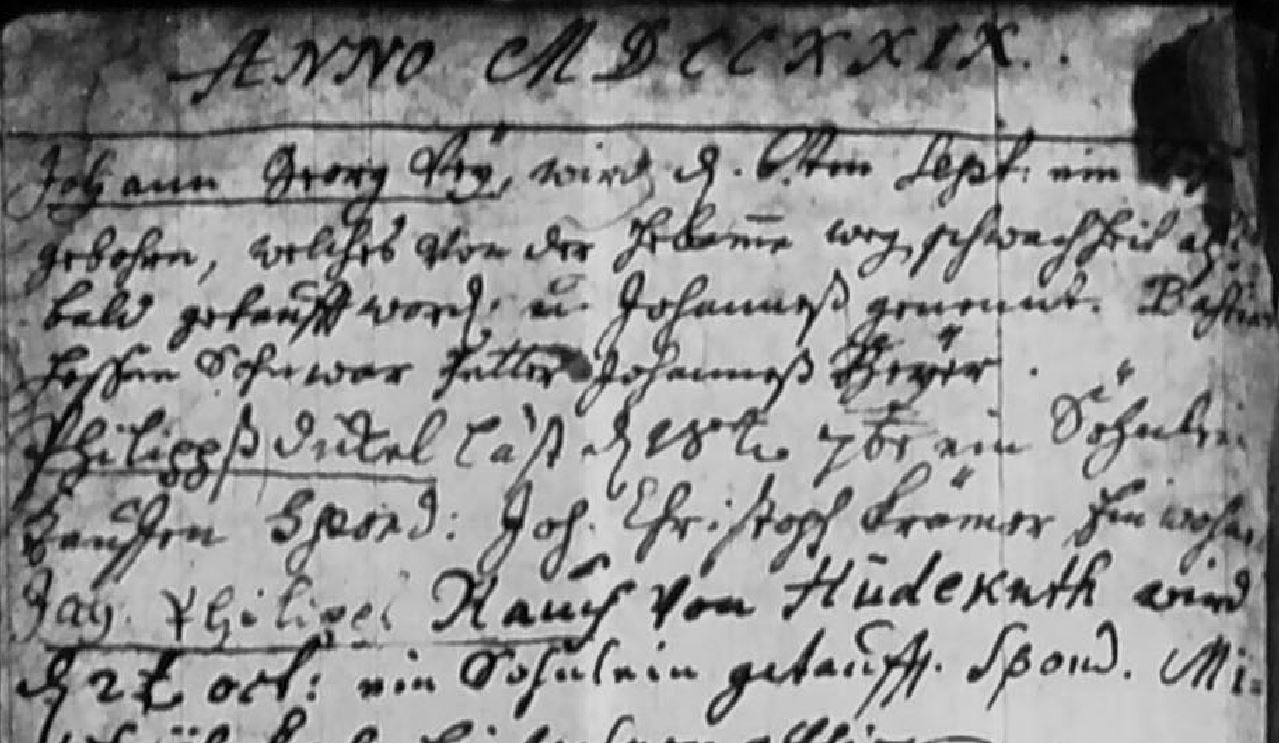 ANNO MDCCXXIX.
Johann Georg wird d. 6.ten Sept: ein
gebohren, welches von der Hebamme weg. schwachheit
bald getaufft word. u. Johanneß genennt.
Sohn war Johanneß
Philippß Dickel läst d 18t. 7br ein Söhnlein
tauffen Spond: Joh. Christoph Krämer
Philippi Rauch von Hüdekuth wird
d 2t. oct: ein Söhnlein getaufft. Spond. Mi-